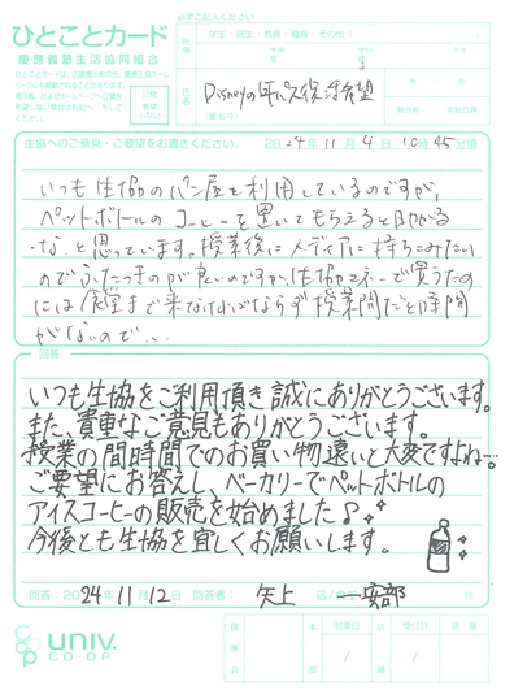 必ずご記入ください
ひとことカード
慶應義塾生活協同組合
ひとことカードは、店舗掲示板の他、生協ホームページにも掲載されることがあります。
所属
学生・院生・教員・職員・その他（　　）
学部
年
氏名
Disneyの年パス復活希望
（匿名可）
生協へのご意見・ご要望をお書きください。 2024年11月4日 16時45分頃
いつも生協のパン屋を利用しているのですが、
ペットボトルのコーヒーを置いてもらえると助かる
な、と思っています。授業後にメディアに持ちこみたい
のでふたつきのが良いのですが、生協マネーで買うため
には食堂まで来なければならず授業間だと時間
がないので…
回答
いつも生協をご利用頂き誠にありがとうございます。
また、貴重なご意見もありがとうございます。
授業の間時間でのお買い物遠いと大変ですよね…。
ご要望にお答えし、ベーカリーでペットボトルの
アイスコーヒーの販売を始めました♪
今後とも生協を宜しくお願いします。
回答：2024年11月12日 回答者： 矢上 店/食堂 安部
UNIV.
CO-OP
理事会
本部
到着日
店舗
受付日
店長